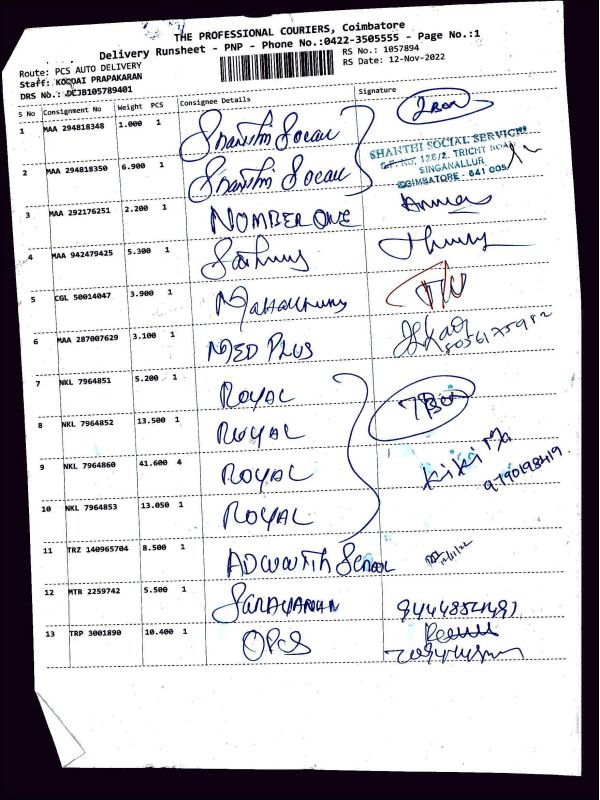 THE PROFESSIONAL COURIERS, Coimbatore
Delivery Runsheet - PNP - Phone No.:0422-3505555 - Page No.:1
Route: PCS AUTO DELIVERY
RS No.: 1057894
Staff: KOODAI PRAPAKARAN
RS Date: 12-Nov-2022
DRS No.: DCJB105789401
S No Consignment No Weight PCS Consignee Details Signature
1 MAA 294818348 1.000 1 Shanthi Social 2 Box
2 MAA 294818350 6.900 1 Shanthi Social
SHANTHI SOCIAL SERVICES
S.F. NO. 128/2. TRICHY ROAD
SINGANALLUR
COIMBATORE - 641 005
3 MAA 292176251 2.200 1 NUMBER ONE
4 MAA 942479425 5.300 1
5 CGL 50014047 3.900 1
6 MAA 287007629 3.100 1 MED PLUS
8056175912
7 NKL 7964851 5.200 1 ROYAL 7 Box
8 NKL 7964852 13.500 1 ROYAL
9 NKL 7964860 41.600 4 ROYAL KiKi Ma
9790198419
10 NKL 7964853 13.050 1 ROYAL
11 TRZ 140965704 8.500 1 School
12/11/22
12 MTR 2259742 5.500 1 SARAVANAN
13 TRP 3001890 10.400 1 OPCS